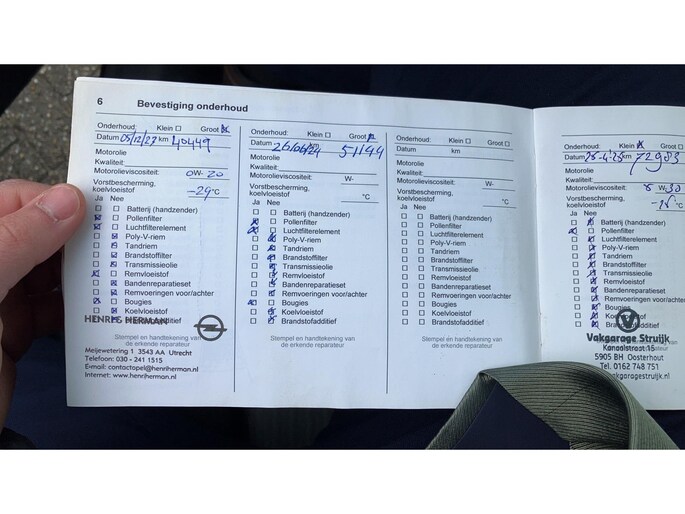 6 Bevestiging onderhoud
Onderhoud: Klein Groot
Datum 05/12/22 km 40449
Motorolie
Kwaliteit:
Motorolieviscositeit: 0W-20
Vorstbescherming,
koelvloeistof -29°C
Ja Nee
Batterij (handzender)
Pollenfilter
Luchtfilterelement
Poly-V-riem
Tandriem
Brandstoffilter
Transmissieolie
Remvloeistof
Bandenreparatieset
Remvoeringen voor/achter
Bougies
Koelvloeistof
HERMAN
Stempel en handtekening van
de erkende reparateur
Meijewetering 1 3543 AA Utrecht
Telefoon: 030 - 241 1515
E-mail: contactopel@henriherman.nl
Internet: www.henriherman.nl
Onderhoud: Klein Groot
Datum km 51144
Motorolie
Kwaliteit:
Motorolieviscositeit: W-
Vorstbescherming,
koelvloeistof °C
Ja Nee
Batterij (handzender)
Pollenfilter
Luchtfilterelement
Poly-V-riem
Tandriem
Brandstoffilter
Transmissieolie
Remvloeistof
Bandenreparatieset
Remvoeringen voor/achter
Bougies
Koelvloeistof
Brandstofadditief
Stempel en handtekening van
de erkende reparateur
Onderhoud: Klein Groot
Datum km
Motorolie
Kwaliteit:
Motorolieviscositeit: W-
Vorstbescherming,
koelvloeistof °C
Ja Nee
Batterij (handzender)
Pollenfilter
Luchtfilterelement
Poly-V-riem
Tandriem
Brandstoffilter
Transmissieolie
Remvloeistof
Bandenreparatieset
Remvoeringen voor/achter
Bougies
Koelvloeistof
Brandstofadditief
Stempel en handtekening van
de erkende reparateur
Onderhoud: Klein Groot
Datum km 72983
Motorolie
Kwaliteit:
Motorolieviscositeit: W-30
Vorstbescherming,
koelvloeistof °C
Ja Nee
Batterij (handzender)
Pollenfilter
Luchtfilterelement
Poly-V-riem
Tandriem
Brandstoffilter
Transmissieolie
Remvloeistof
Bandenreparatieset
Remvoeringen voor/achter
Bougies
Vakgarage Struijk
Kanaalstraat 15
5905 BH Oosterhout
Tel. 0162 748 751